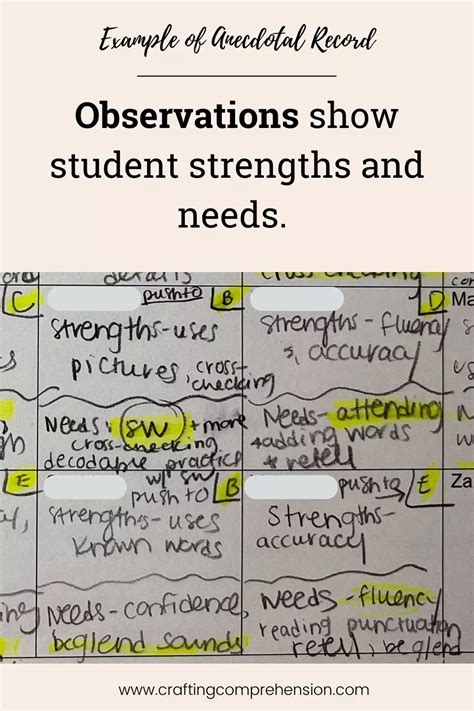 Example of Anecdotal Record
Observations show
student strengths and
needs.
details
cross checking
C
pushto
B
D
Ma
Strengths-uses
pictures, cross-
checking
Strengths - fluency
, accuracy
Needs: SW + more
cross-checking
decodable practice
Needs- attending
+adding words
+ retell
E
w/ sw
push to
B
pushto
E
Za
Strengths-uses
known words
Strengths-
accuracy
Needs-confidence,
beg/end sounds
Needs -fluency
reading punctuation
retell, beg/end
www.craftingcomprehension.com